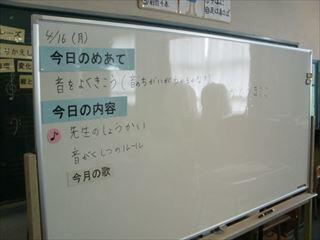 4/16 (月)
今日のめあて
音をよくきこう(音のちがいが
今日の内容
先生のしょうかい
音がくしつのルール
今月の歌
りかえし
変化